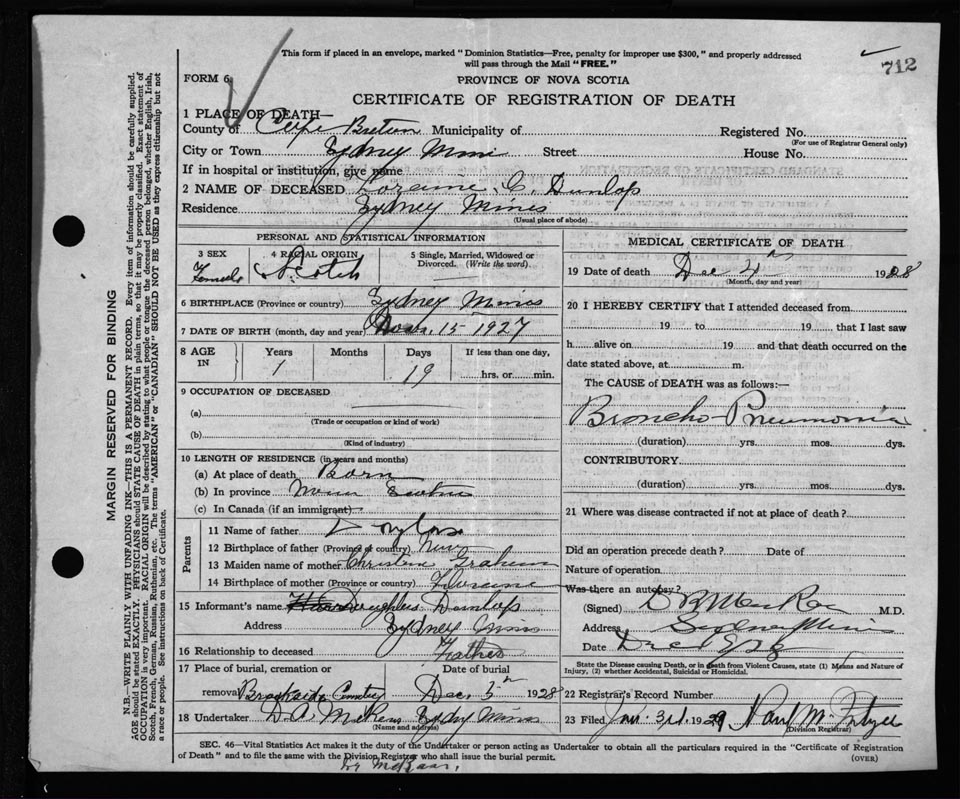 This form if placed in an envelope, marked "Dominion Statistics—Free, penalty for improper use $300," and properly addressed
will pass through the Mail "FREE."
712
FORM 6
PROVINCE OF NOVA SCOTIA
CERTIFICATE OF REGISTRATION OF DEATH
1 PLACE OF DEATH—
County of Cape Breton Municipality of Registered No.
(For use of Registrar General only)
City or Town Sydney Mines Street House No.
If in hospital or institution, give name
2 NAME OF DECEASED Loraine C. Dunlop
Residence Sydney Mines
(Usual place of abode)
PERSONAL AND STATISTICAL INFORMATION
3 SEX Female
4 RACIAL ORIGIN Scotch
5 Single, Married, Widowed or
Divorced. (Write the word)
6 BIRTHPLACE (Province or country) Sydney Mines
7 DATE OF BIRTH (month, day and year) Nov. 15 - 1927
8 AGE IN
Years Months Days If less than one day,
1 19 hrs. or min.
9 OCCUPATION OF DECEASED
(a)
(Trade or occupation or kind of work)
(b)
(Kind of industry)
10 LENGTH OF RESIDENCE (in years and months)
(a) At place of death Born
(b) In province Nova Scotia
(c) In Canada (if an immigrant)
Parents
11 Name of father
12 Birthplace of father (Province or country)
13 Maiden name of mother Christena Graham
14 Birthplace of mother (Province or country) Florence
15 Informant's name Douglas Dunlop
Address Sydney Mines
16 Relationship to deceased Father
17 Place of burial, cremation or Date of burial
removal Brookside Cemetry Dec. 5th 1928
18 Undertaker D. A. Sydney Mines
(Name and address)
MEDICAL CERTIFICATE OF DEATH
19 Date of death Dec 4th 1928
(Month, day and year)
20 I HEREBY CERTIFY that I attended deceased from
19 to 19 that I last saw
h alive on 19 and that death occurred on the
date stated above, at m.
The CAUSE of DEATH was as follows:—
Broncho-Pneumonia
(duration) yrs. mos. dys.
CONTRIBUTORY
(duration) yrs. mos. dys.
21 Where was disease contracted if not at place of death?
Did an operation precede death? Date of
Nature of operation
Was there an autopsy?
(Signed) M.D.
Address Sydney Mines
Date Dec 1928
State the Disease causing Death, or in death from Violent Causes, state (1) Means and Nature of
Injury, (2) whether Accidental, Suicidal or Homicidal.
22 Registrar's Record Number
23 Filed Jan. 3rd. 1929
(Division Registrar)
SEC. 46—Vital Statistics Act makes it the duty of the Undertaker or person acting as Undertaker to obtain all the particulars required in the "Certificate of Registration
of Death" and to file the same with the Division Registrar who shall issue the burial permit.
(OVER)
MARGIN RESERVED FOR BINDING
N.B.—WRITE PLAINLY WITH UNFADING INK—THIS IS A PERMANENT RECORD. Every item of information should be carefully supplied.
AGE should be stated EXACTLY. PHYSICIANS should STATE CAUSE OF DEATH in plain terms, so that it may be properly classified. Exact statement of
OCCUPATION is very important. RACIAL ORIGIN will be described by stating to what people or tongue the deceased person belonged, whether English, Irish,
Scotch, French, German, Russian, Ruthenian, etc. The terms "AMERICAN" or "CANADIAN" SHOULD NOT BE USED as they express citizenship but not
a race or people. See instructions on back of Certificate.